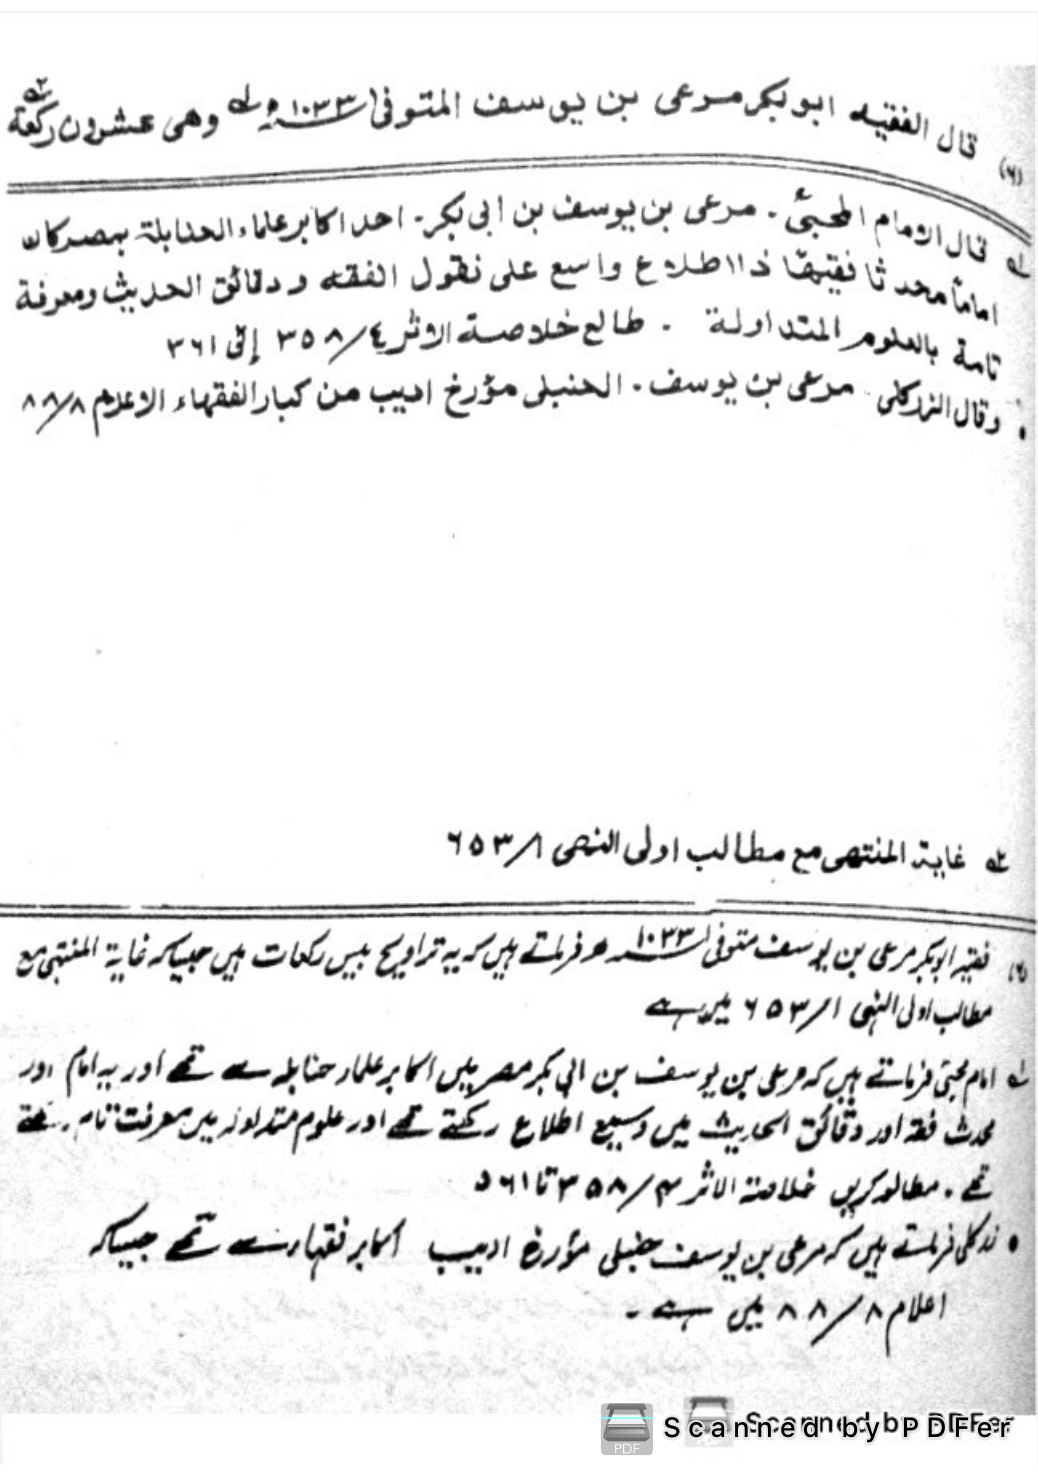 (٦) قال الفقيه ابو بكر مرعى بن يوسف المتوفى ١٠٣٣ھ ١ے وهى عشرون ركعة ٢ے
١ے قال الامام المحبىّ . مرعى بن يوسف بن ابى بكر . احد اكابر علماء الحنابلة بمصر كان
اماماً محدثا فقيهًا ذا اطلاع واسع على نقول الفقه و دقائق الحديث ومعرفة
تامة بالعلوم المتداولة . طالع خلاصة الاثر ٤/٣٥٨ إلى ٣٦١
• وقال الزركلى مرعى بن يوسف . الحنبلى مؤرخ اديب من كبار الفقهاء الاعلام ٨/٨٨
٢ے غاية المنتهى مع مطالب اولى النهى ١/٦٥٣
(٦) فقیہ ابو بکر مرعی بن یوسف متوفی ١٠٣٣ھ فرماتے ہیں کہ یہ تراویح بیس رکعات ہیں جیسا کہ غایۃ المنتہی مع
مطالب اولی النہی ١/٦٥٣ میں ہے
١ے امام محبی فرماتے ہیں کہ مرعی بن یوسف بن ابی بکر مصر میں اکابر علماء حنابلہ سے تھے اور یہ امام اور
محدث فقہ اور دقائق الحدیث میں وسیع اطلاع رکھتے تھے اور علوم متداولہ میں معرفت تامہ رکھتے
تھے . مطالعہ کریں خلاصۃ الاثر ٤/٣٥٨ تا ٥٦١
• زرکلی فرماتے ہیں کہ مرعی بن یوسف حنبلی مؤرخ ادیب اکابر فقہاء سے تھے جیسا کہ
اعلام ٨/٨٨ میں ہے ۔
Scanned by PDFer
Scanned by PDFer